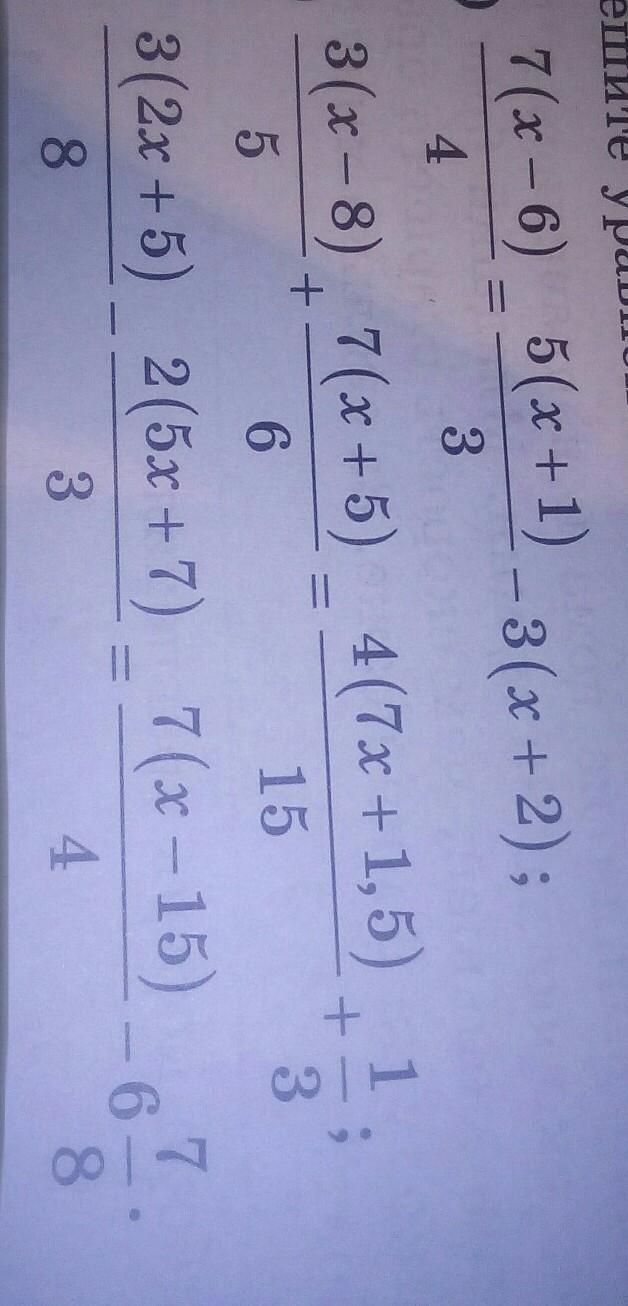 7(x − 6)/4 = 5(x + 1)/3 − 3(x + 2);
3(x − 8)/5 + 7(x + 5)/6 = 4(7x + 1,5)/15 + 1/3;
3(2x + 5)/8 − 2(5x + 7)/3 = 7(x − 15)/4 − 6 7/8.